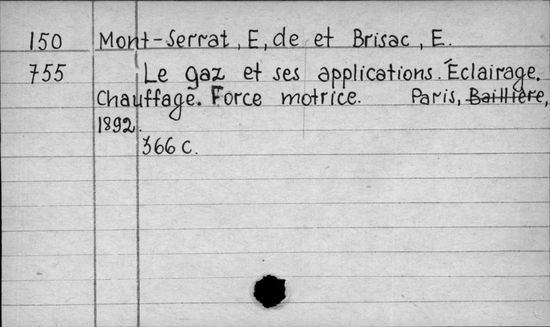 150 Mont-Serrat, E, de et Brisac, E.
755 Le gaz et ses applications. Éclairage.
Chauffage. Force motrice. Paris, Baillière,
1892.
366 c.